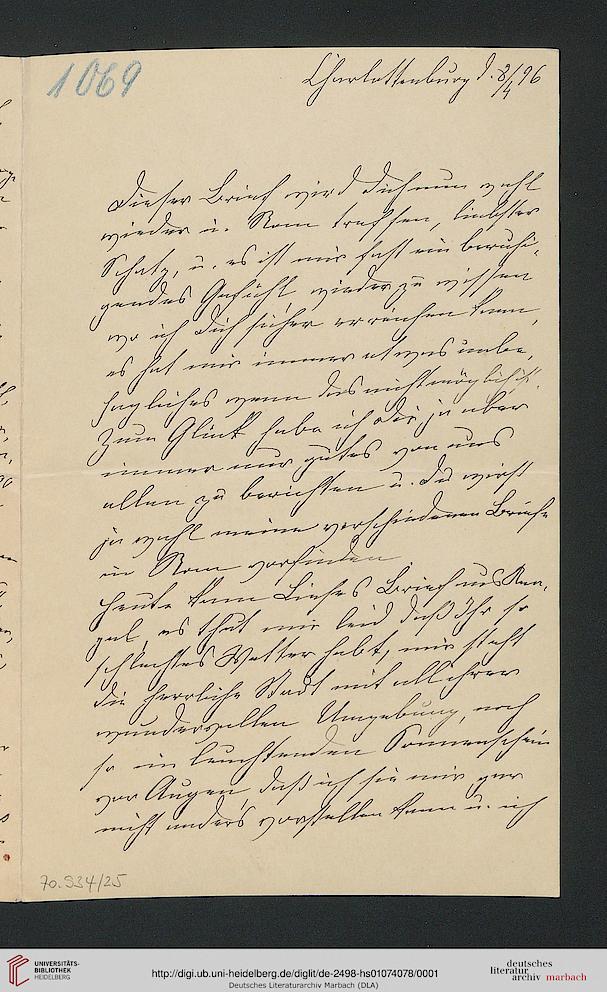 1069
Charlottenburg d. 8/4 96
Dieser Brief wird Dich nun wohl
wieder in Rom treffen, liebster
Schatz, u. es ist mir fast ein beruhi-
gendes Gefühl wieder zu wissen
wo ich Dich sicher erreichen kann,
es hat mir immer etwas unbe-
hagliches wenn das nicht möglich ist.
Zum Glück habe ich Dir ja aber
immer nur gutes von uns
allen zu berichten u. Du wirst
ja wohl meine verschiedenen Briefe
in Rom vorfinden
Heute kam Liebes Brief aus Nea-
pel, es thut mir leid daß Ihr so
schlechtes Wetter habt, mir steht
die herrliche Stadt mit all ihrer
wundervollen Umgebung, noch
so im leuchtenden Sonnenschein
vor Augen daß ich sie mir gar
nicht anders vorstellen kann u. ich
70.934/25
UNIVERSITÄTS-
BIBLIOTHEK
HEIDELBERG
http://digi.ub.uni-heidelberg.de/diglit/de-2498-hs01074078/0001
Deutsches Literaturarchiv Marbach (DLA)
deutsches
literatur
archiv marbach